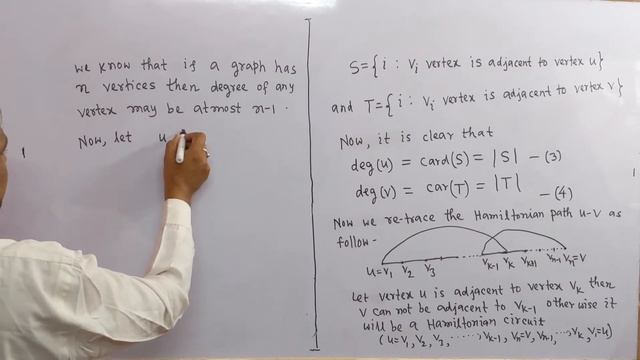 we know that if a graph has
n vertices then degree of any
vertex may be atmost n-1 .
Now, let u
S={ i : vi vertex is adjacent to vertex u}
and T={ i : vi vertex is adjacent to vertex v}
Now, it is clear that
deg(u) = card(S) = |S| -(3)
deg(v) = car(T) = |T| -(4)
Now we re-trace the Hamiltonian path u-v as
follow-
u=v1 v2 v3 ...... vk-1 vk vk+1 ... vn-1 vn=v
Let vertex u is adjacent to vertex vk then
v can not be adjacent to vk-1 otherwise it
will be a Hamiltonian circuit
(u=v1, v2, v3, ......, vk-1, vn=v, vn-1, ..., vk, v1=u)